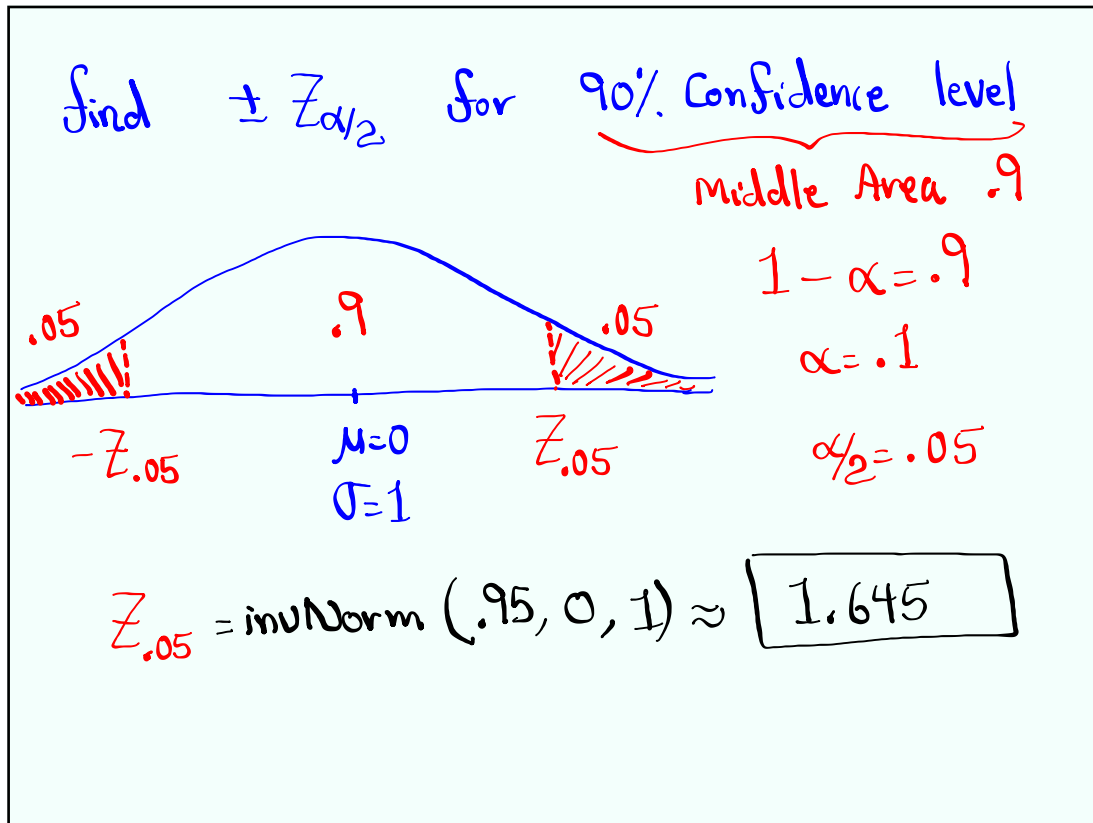 find ± Z α/2 for 90% Confidence level
Middle Area .9
1 - α = .9
.05 .9 .05
α = .1
-Z.05 μ=0 Z.05
α/2 = .05
σ=1
Z.05 = invNorm (.95, 0, 1) ≈ 1.645